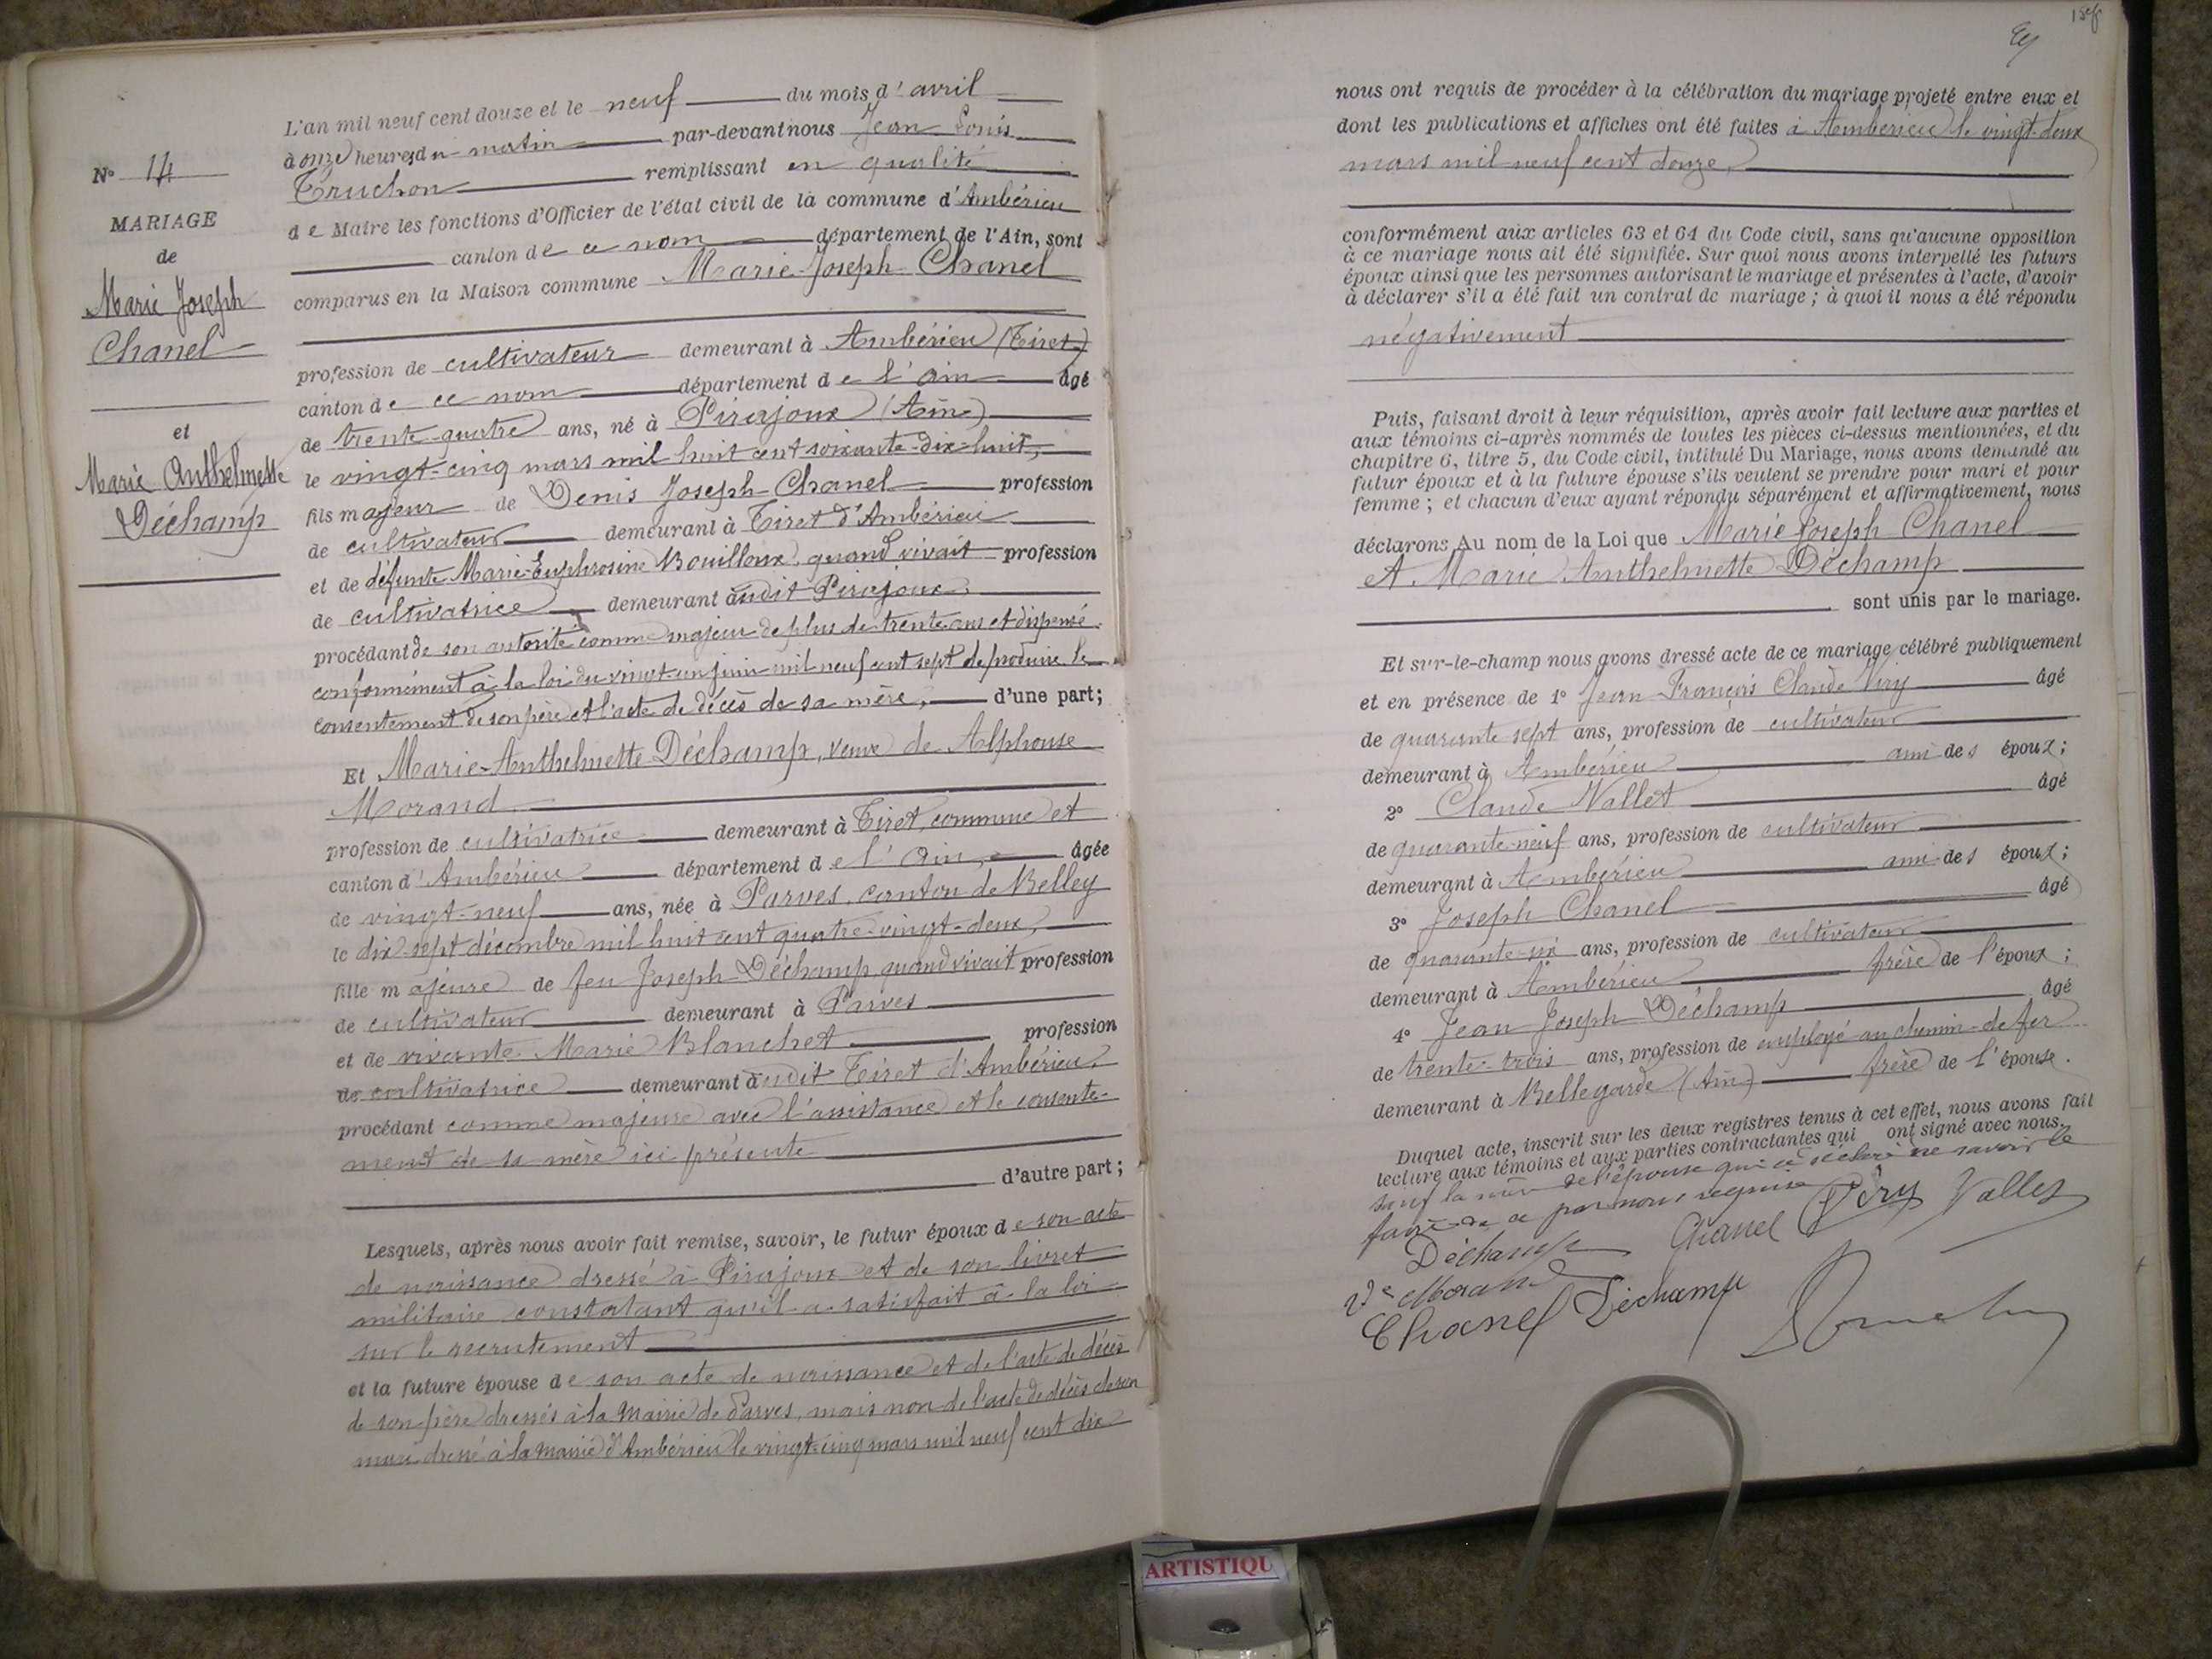 N° 14
MARIAGE
de
Marie Joseph
Chanel
et
Marie Anthelmette
Déchamp
L'an mil neuf cent douze et le neuf du mois d'avril
à onze heures du matin par-devant nous Jean Louis
Truchon remplissant en qualité
de Maire les fonctions d'Officier de l'état civil de la commune d'Ambérieu
canton de ce nom département de l'Ain, sont
comparus en la Maison commune Marie-Joseph Chanel
profession de cultivateur demeurant à Ambérieu (Tiret)
canton de ce nom département de l'Ain âgé
de trente-quatre ans, né à Pirajoux (Ain)
le vingt-cinq mars mil huit cent soixante-dix-huit,
fils majeur de Denis Joseph Chanel profession
de cultivateur demeurant à Tiret d'Ambérieu
et de défunte Marie-Euphrosine Bouilloux, quand vivait profession
de cultivatrice demeurant audit Pirajoux,
procédant de son autorité comme majeur de plus de trente ans et dispensé
conformément à la loi du vingt-un juin mil neuf cent sept de produire le
consentement de son père et l'acte de décès de sa mère, d'une part;
Et Marie-Anthelmette Déchamp, veuve de Alphonse
Morand
profession de cultivatrice demeurant à Tiret, commune et
canton d'Ambérieu département de l'Ain, âgée
de vingt-neuf ans, née à Parves, canton de Belley
le dix-sept décembre mil huit cent quatre-vingt-deux,
fille majeure de feu Joseph Déchamp quand vivait profession
de cultivateur demeurant à Parves
et de vivante Marie Blanchet profession
de cultivatrice demeurant audit Tiret d'Ambérieu,
procédant comme majeure avec l'assistance et le consente-
ment de sa mère ici présente
d'autre part;
Lesquels, après nous avoir fait remise, savoir, le futur époux de son acte
de naissance dressé à Pirajoux et de son livret
militaire constatant qu'il a satisfait à la loi
sur le recrutement
et la future épouse de son acte de naissance et de l'acte de décès
de son père dressés à la Mairie de Parves, mais non de l'acte de décès de son
mari dressé à la mairie d'Ambérieu le vingt-cinq mars mil neuf cent dix
nous ont requis de procéder à la célébration du mariage projeté entre eux et
dont les publications et affiches ont été faites à Ambérieu le vingt-deux
mars mil neuf cent douze,
conformément aux articles 63 et 64 du Code civil, sans qu'aucune opposition
à ce mariage nous ait été signifiée. Sur quoi nous avons interpellé les futurs
époux ainsi que les personnes autorisant le mariage et présentes à l'acte, d'avoir
à déclarer s'il a été fait un contrat de mariage; à quoi il nous a été répondu
négativement
Puis, faisant droit à leur réquisition, après avoir fait lecture aux parties et
aux témoins ci-après nommés de toutes les pièces ci-dessus mentionnées, et du
chapitre 6, titre 5, du Code civil, intitulé Du Mariage, nous avons demandé au
futur époux et à la future épouse s'ils veulent se prendre pour mari et pour
femme; et chacun d'eux ayant répondu séparément et affirmativement, nous
déclarons Au nom de la Loi que Marie Joseph Chanel
et Marie Anthelmette Déchamp
sont unis par le mariage.
Et sur-le-champ nous avons dressé acte de ce mariage célébré publiquement
et en présence de 1° Jean François Claude Viry âgé
de quarante sept ans, profession de cultivateur
demeurant à Ambérieu ami des époux;
2° Claude Vallet âgé
de quarante-neuf ans, profession de cultivateur
demeurant à Ambérieu ami des époux;
3° Joseph Chanel âgé
de quarante-six ans, profession de cultivateur
demeurant à Ambérieu frère de l'époux;
4° Jean Joseph Déchamp âgé
de trente-trois ans, profession de employé au chemin-de-fer
demeurant à Bellegarde (Ain) frère de l'épouse.
Duquel acte, inscrit sur les deux registres tenus à cet effet, nous avons fait
lecture aux témoins et aux parties contractantes qui ont signé avec nous,
sauf la mère de l'épouse qui a déclaré ne savoir le
faire de ce par nous requise
Déchamp Chanel Viry Vallet
Ve Morand
Chanel Déchamp
ARTISTIQU